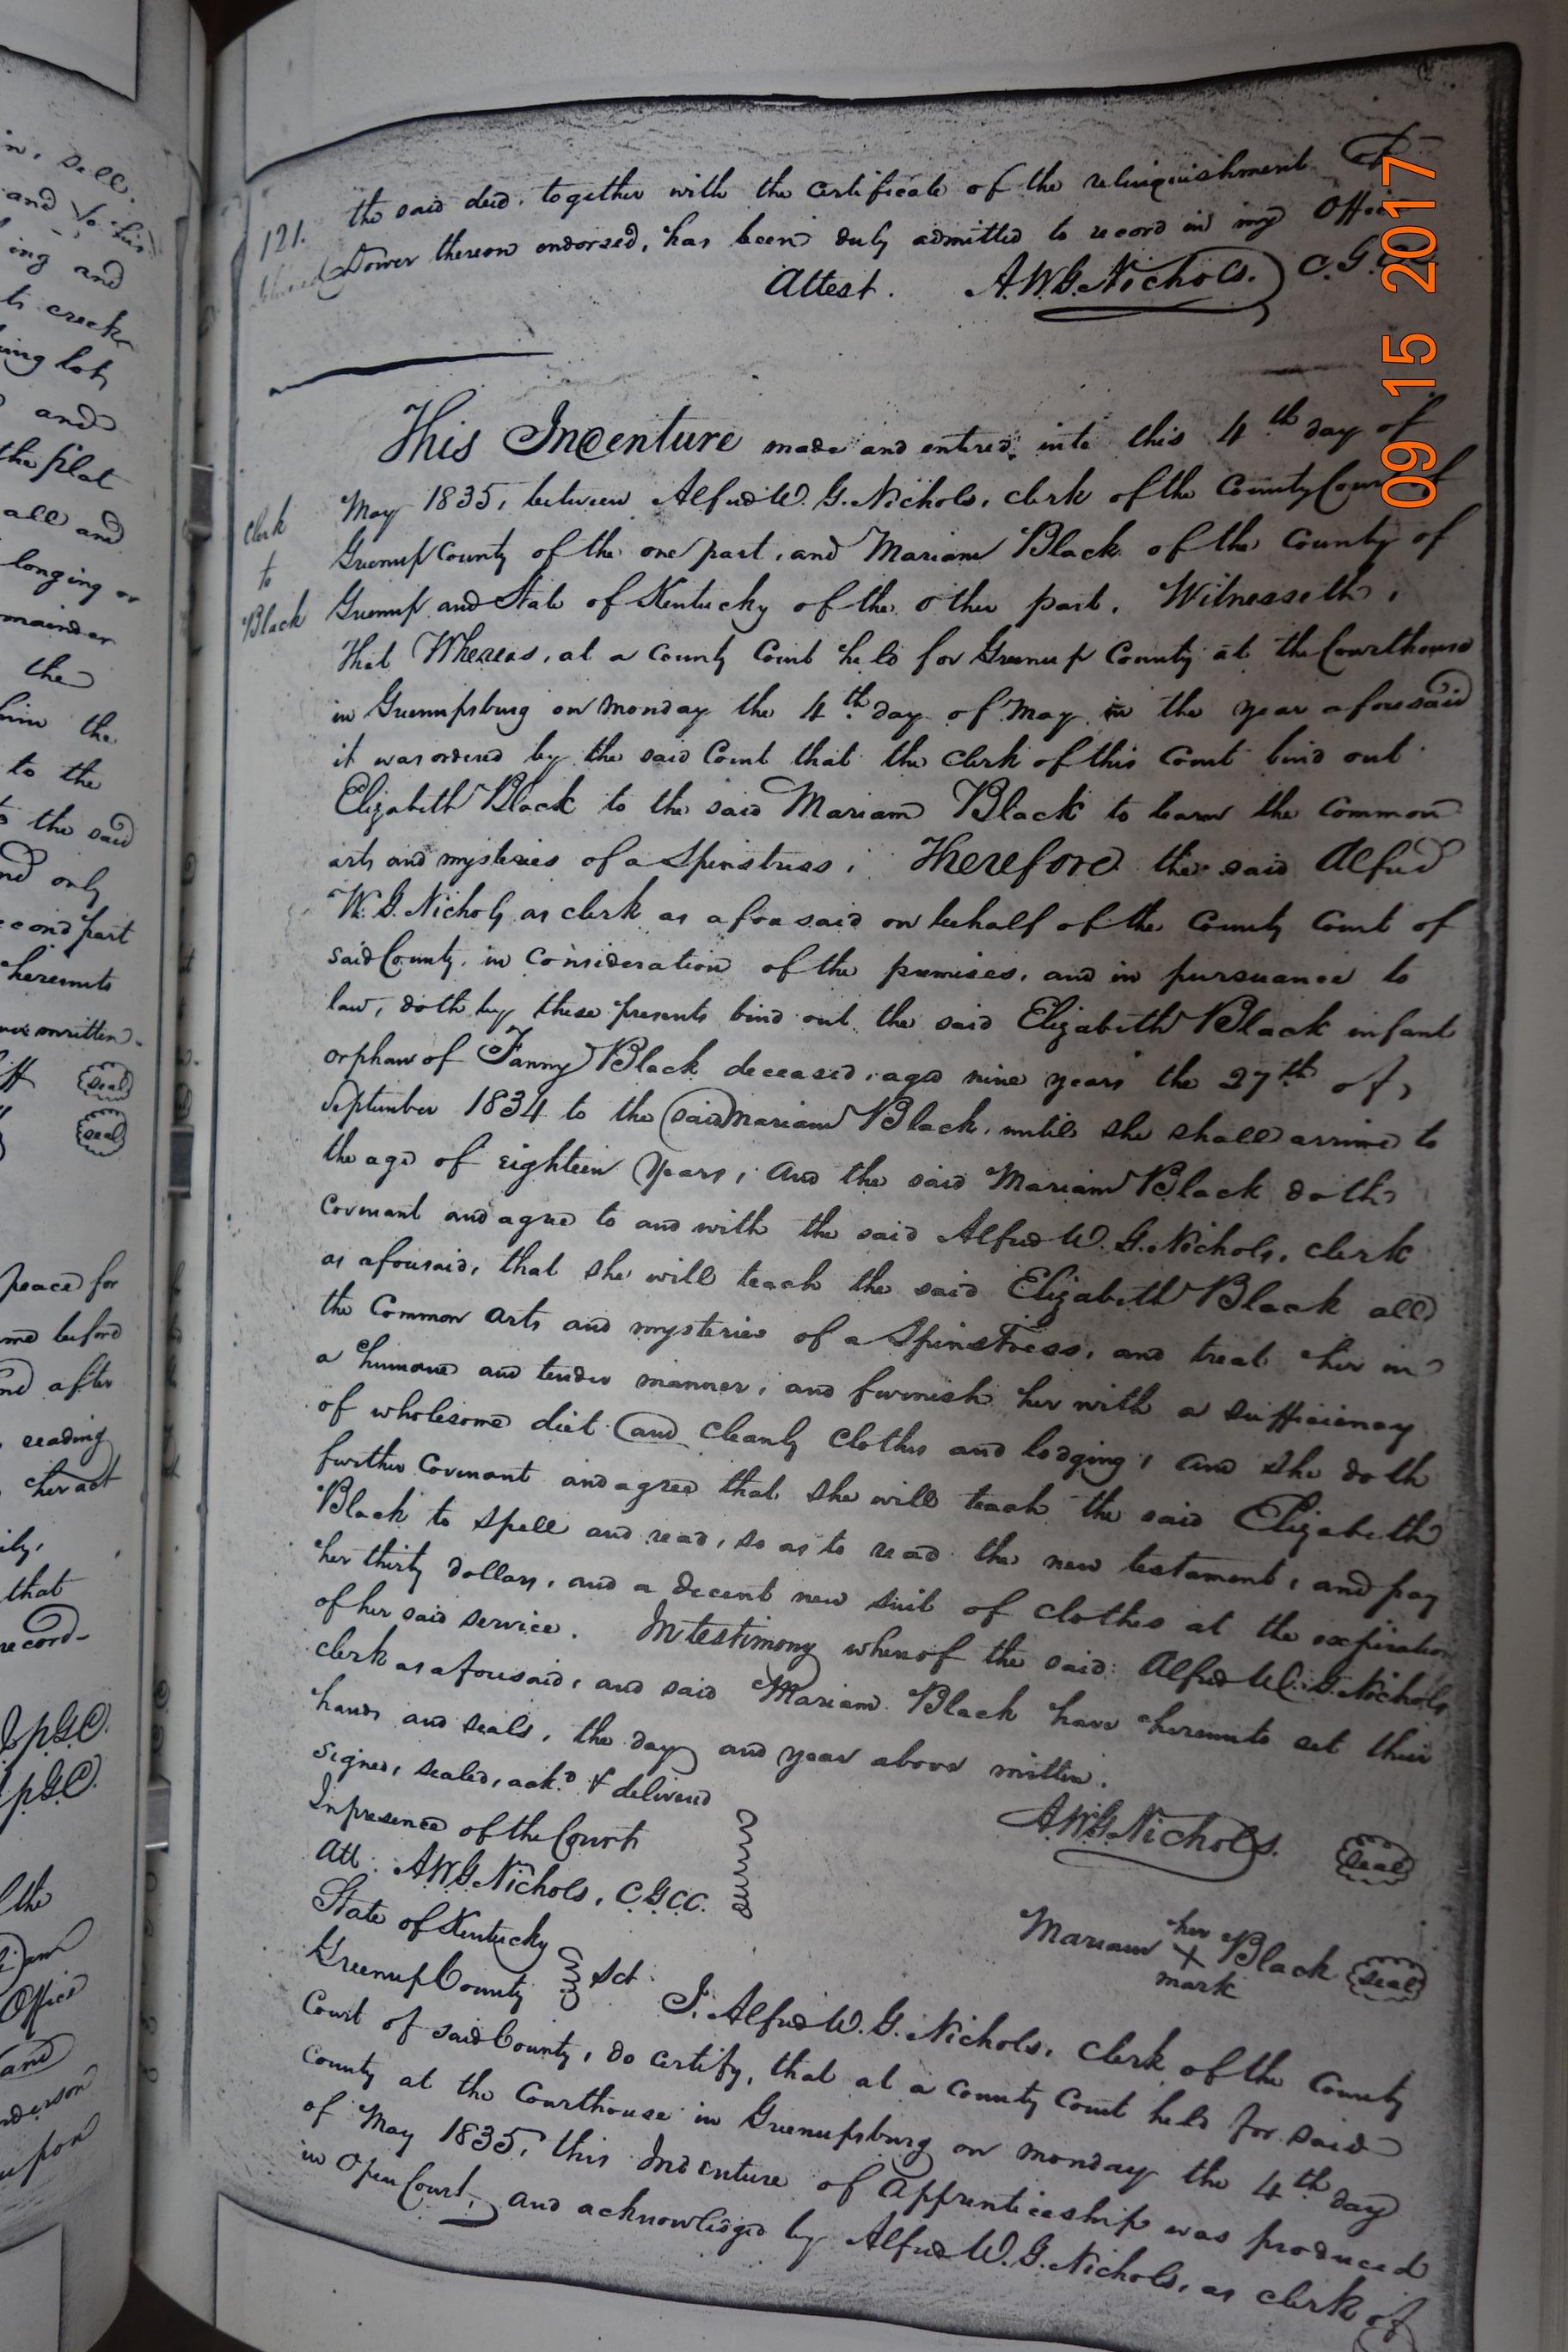 in, sell
and to his
ing and
ts creek
ing lot,
and
the plat
all and
longing or
mainder
the
him the
to the
to the said
nd only
second part
hereunto
above written.
seal
seal
peace for
me before
nd after
reading
her act
ily,
that
record-
JPGC.
JPGC.
the
Office
and
nderson
upon
121.
the said deed, together with the certificate of the relinquishment of
Dower thereon endorsed, has been duly admitted to record in my Office
Attest. A.W.G. Nichols. C.G.C.C.
09 15 2017
This Indenture made and entered, into this 4th day of
May 1835, between Alfred W. G. Nichols, clerk of the County Court of
Clerk
to
Black
Greenup County of the one part, and Mariam Black of the County of
Greenup and State of Kentucky of the other part, Witnesseth,
That Whereas, at a County Court held for Greenup County at the Courthouse
in Greenupsburg on monday the 4th day of May in the year aforesaid
it was ordered by the said Court that the clerk of this Court bind out
Elizabeth Black to the said Mariam Black to learn the Common
arts and mysteries of a Spinstress; Therefore the said Alfred
W. G. Nichols, as clerk as aforesaid on behalf of the County Court of
said County, in Consideration of the premises, and in pursuance to
law, doth by these presents bind out the said Elizabeth Black infant
orphan of Fanny Black deceased, aged nine years the 27th of,
September 1834 to the said Mariam Black, until she shall arrive to
the age of eighteen Years; And the said Mariam Black doth
Covenant and agree to and with the said Alfred W. G. Nichols, clerk
as aforesaid, that she will teach the said Elizabeth Black all
the Common arts and mysteries of a Spinstress, and treat her in
a humane and tender manner, and furnish her with a sufficiency
of wholesome diet and cleanly clothes and lodging; and she doth
further Covenant and agree that she will teach the said Elizabeth
Black to spell and read, so as to read the new testament, and pay
her thirty dollars, and a decent new suit of clothes at the expiration
of her said service. In testimony whereof the said Alfred W. G. Nichols
clerk as aforesaid, and said Mariam Black have hereunto set their
hands and seals, the day and year above written.
Signed, sealed, ackd & delivered
In presence of the Court
Att: A.W.G. Nichols, C.G.C.C.
A.W.G. Nichols. seal
her
Mariam X Black seal
mark
State of Kentucky
Greenup County Sct.
I, Alfred W. G. Nichols, clerk of the County
Court of said County, do certify, that at a County Court held for said
County at the Courthouse in Greenupsburg on monday the 4th day
of May 1835, this Indenture of Apprenticeship was produced
in Open Court, and acknowledged by Alfred W. G. Nichols, as clerk of